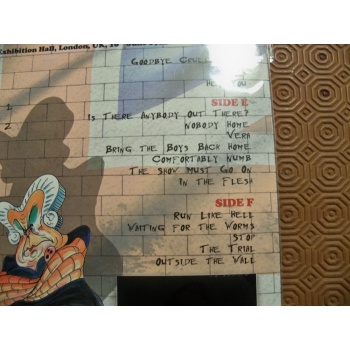 Exhibition Hall, London, UK,
Goodbye Cruel
1.
2
SIDE E
Is There Anybody Out There?
Nobody Home
Vera
Bring The Boys Back Home
Comfortably Numb
The Show Must Go On
In The Flesh
SIDE F
Run Like Hell
Waiting For The Worms
Stop
The Trial
Outside The Wall